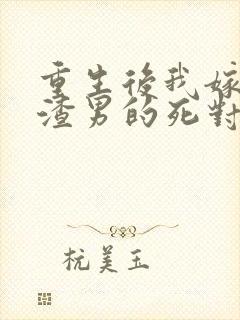 重生後我嫁
渣男的死對
杭美玉